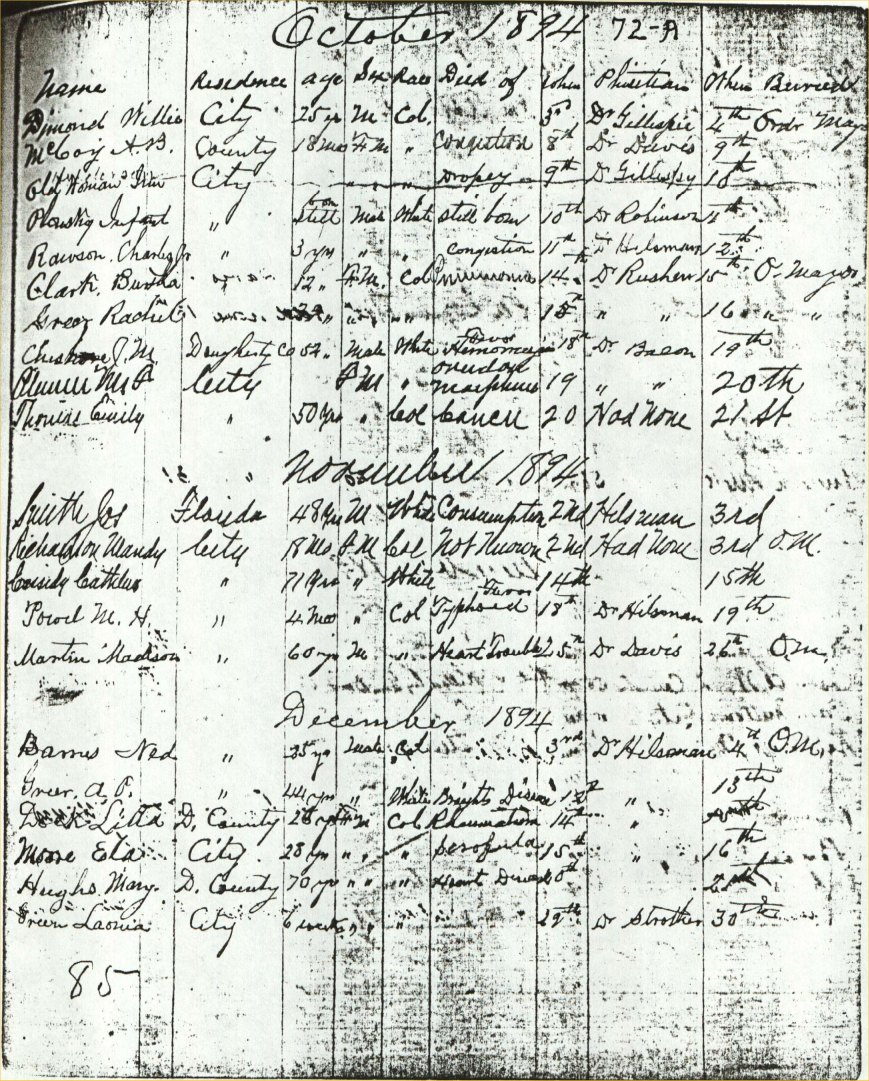 October 1894 72-A
Name Residence age Sex Race Died of When Phisitian When Burried
Dimond Willie City 25 yr M Col. 3rd Dr Gillispie 4th Ordr Mayo
McCoy A.B. County 18 Mos F M " Congestion 8th Dr Davis 9th
City " dropsy 9th Dr Gillispy 10th
Infant " still born Mal White still born 10th Dr Robinson 11th
Rawson, Charles Jr " 3 yrs " " congestion 11th Dr Hilsman 12th
Clark, 12 " F.M. Col Pneumonia 14th Dr 15th O. Mayor
Rachiel " " 15th " " 16 " "
J. M. Daugherty Co 52 " Male White 18th Dr. Bacon 19th
City F M " overdose Morphine 19 " " 20th
Thomas Emily " 50 yrs " Col Cancer 20 Had None 21 St
November 1894
Smith Jos Florida 48 yrs M White Consumption 2nd Hilsman 3rd
Richardson Mandy City 18 Mo. F M Col Not Known 2nd Had None 3rd O.M.
" 71 yrs " White 14th 15th
Powel M. H. " 4 Mos " Col Typhoid Fever 18th Dr Hilsman 19th
Martin Madison " 60 yrs M " Heart Trouble 25th Dr Davis 26th O.M.
December 1894
Barnes Ned " 35 yrs Male Col 3rd Dr Hilsman 4th O.M.
Greer, A. P. " 44 yrs " White Brights Disease 12th " 13th
Litta D. County 26 yrs F m Col Rheumatism 14th "
Moore Eta City 28 yrs " " " Scrofula 15th " 16th
Hughs, Mary. D. County 70 yrs " " " Heart Disease
Green Laonia City 6 weeks " " " 29th Dr Strother 30th
85